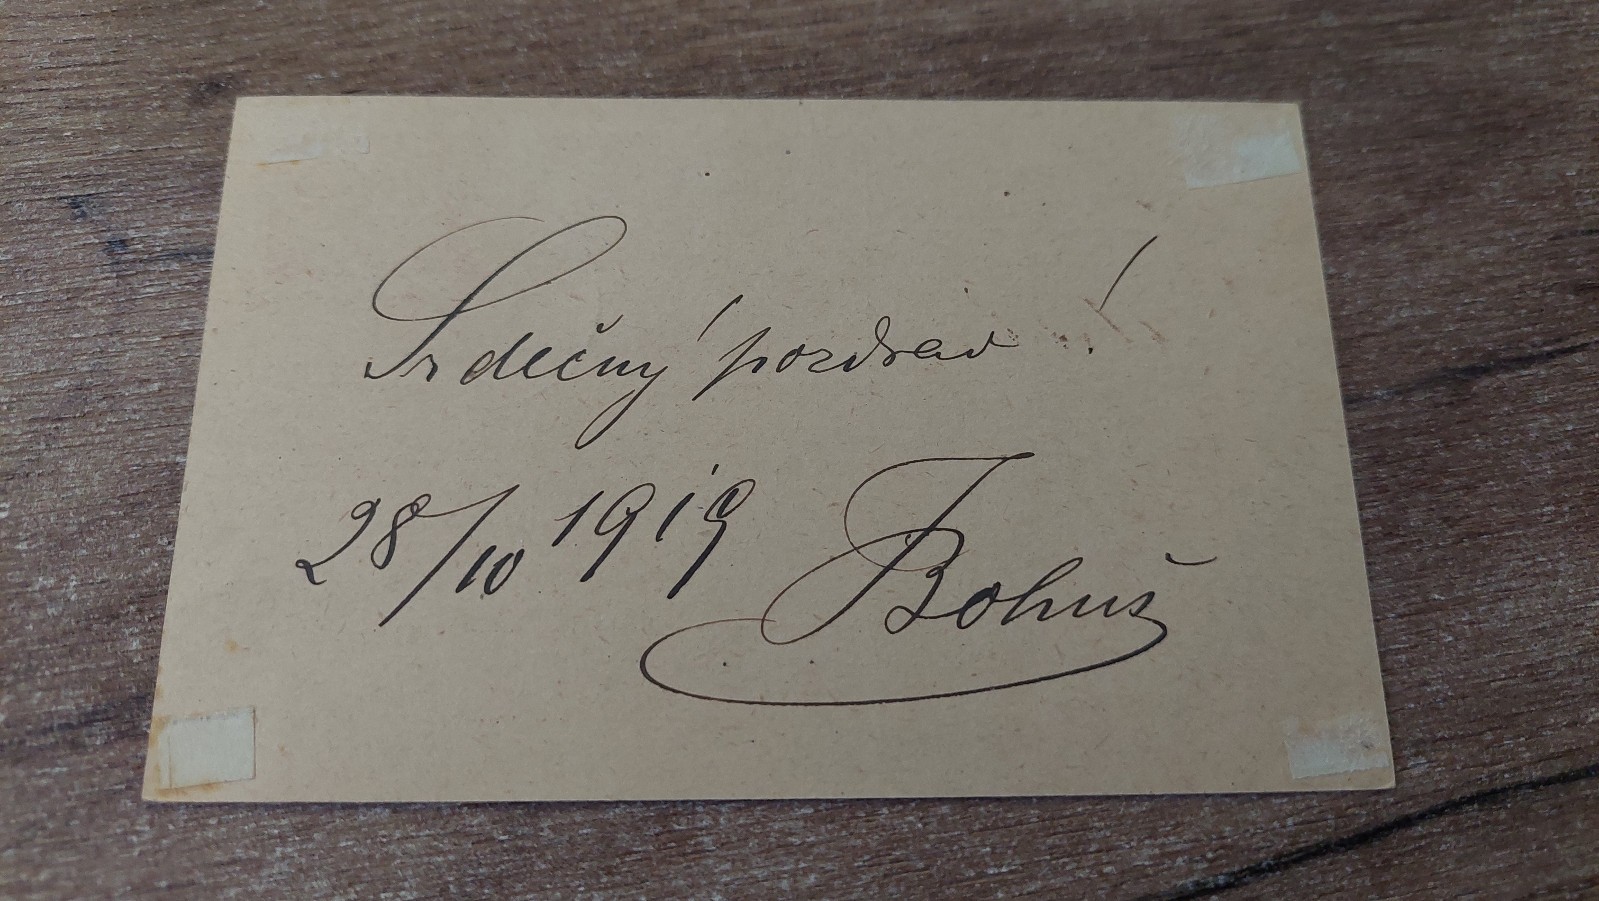 Srdečný pozdrav!
28/10 1919 Bohuš